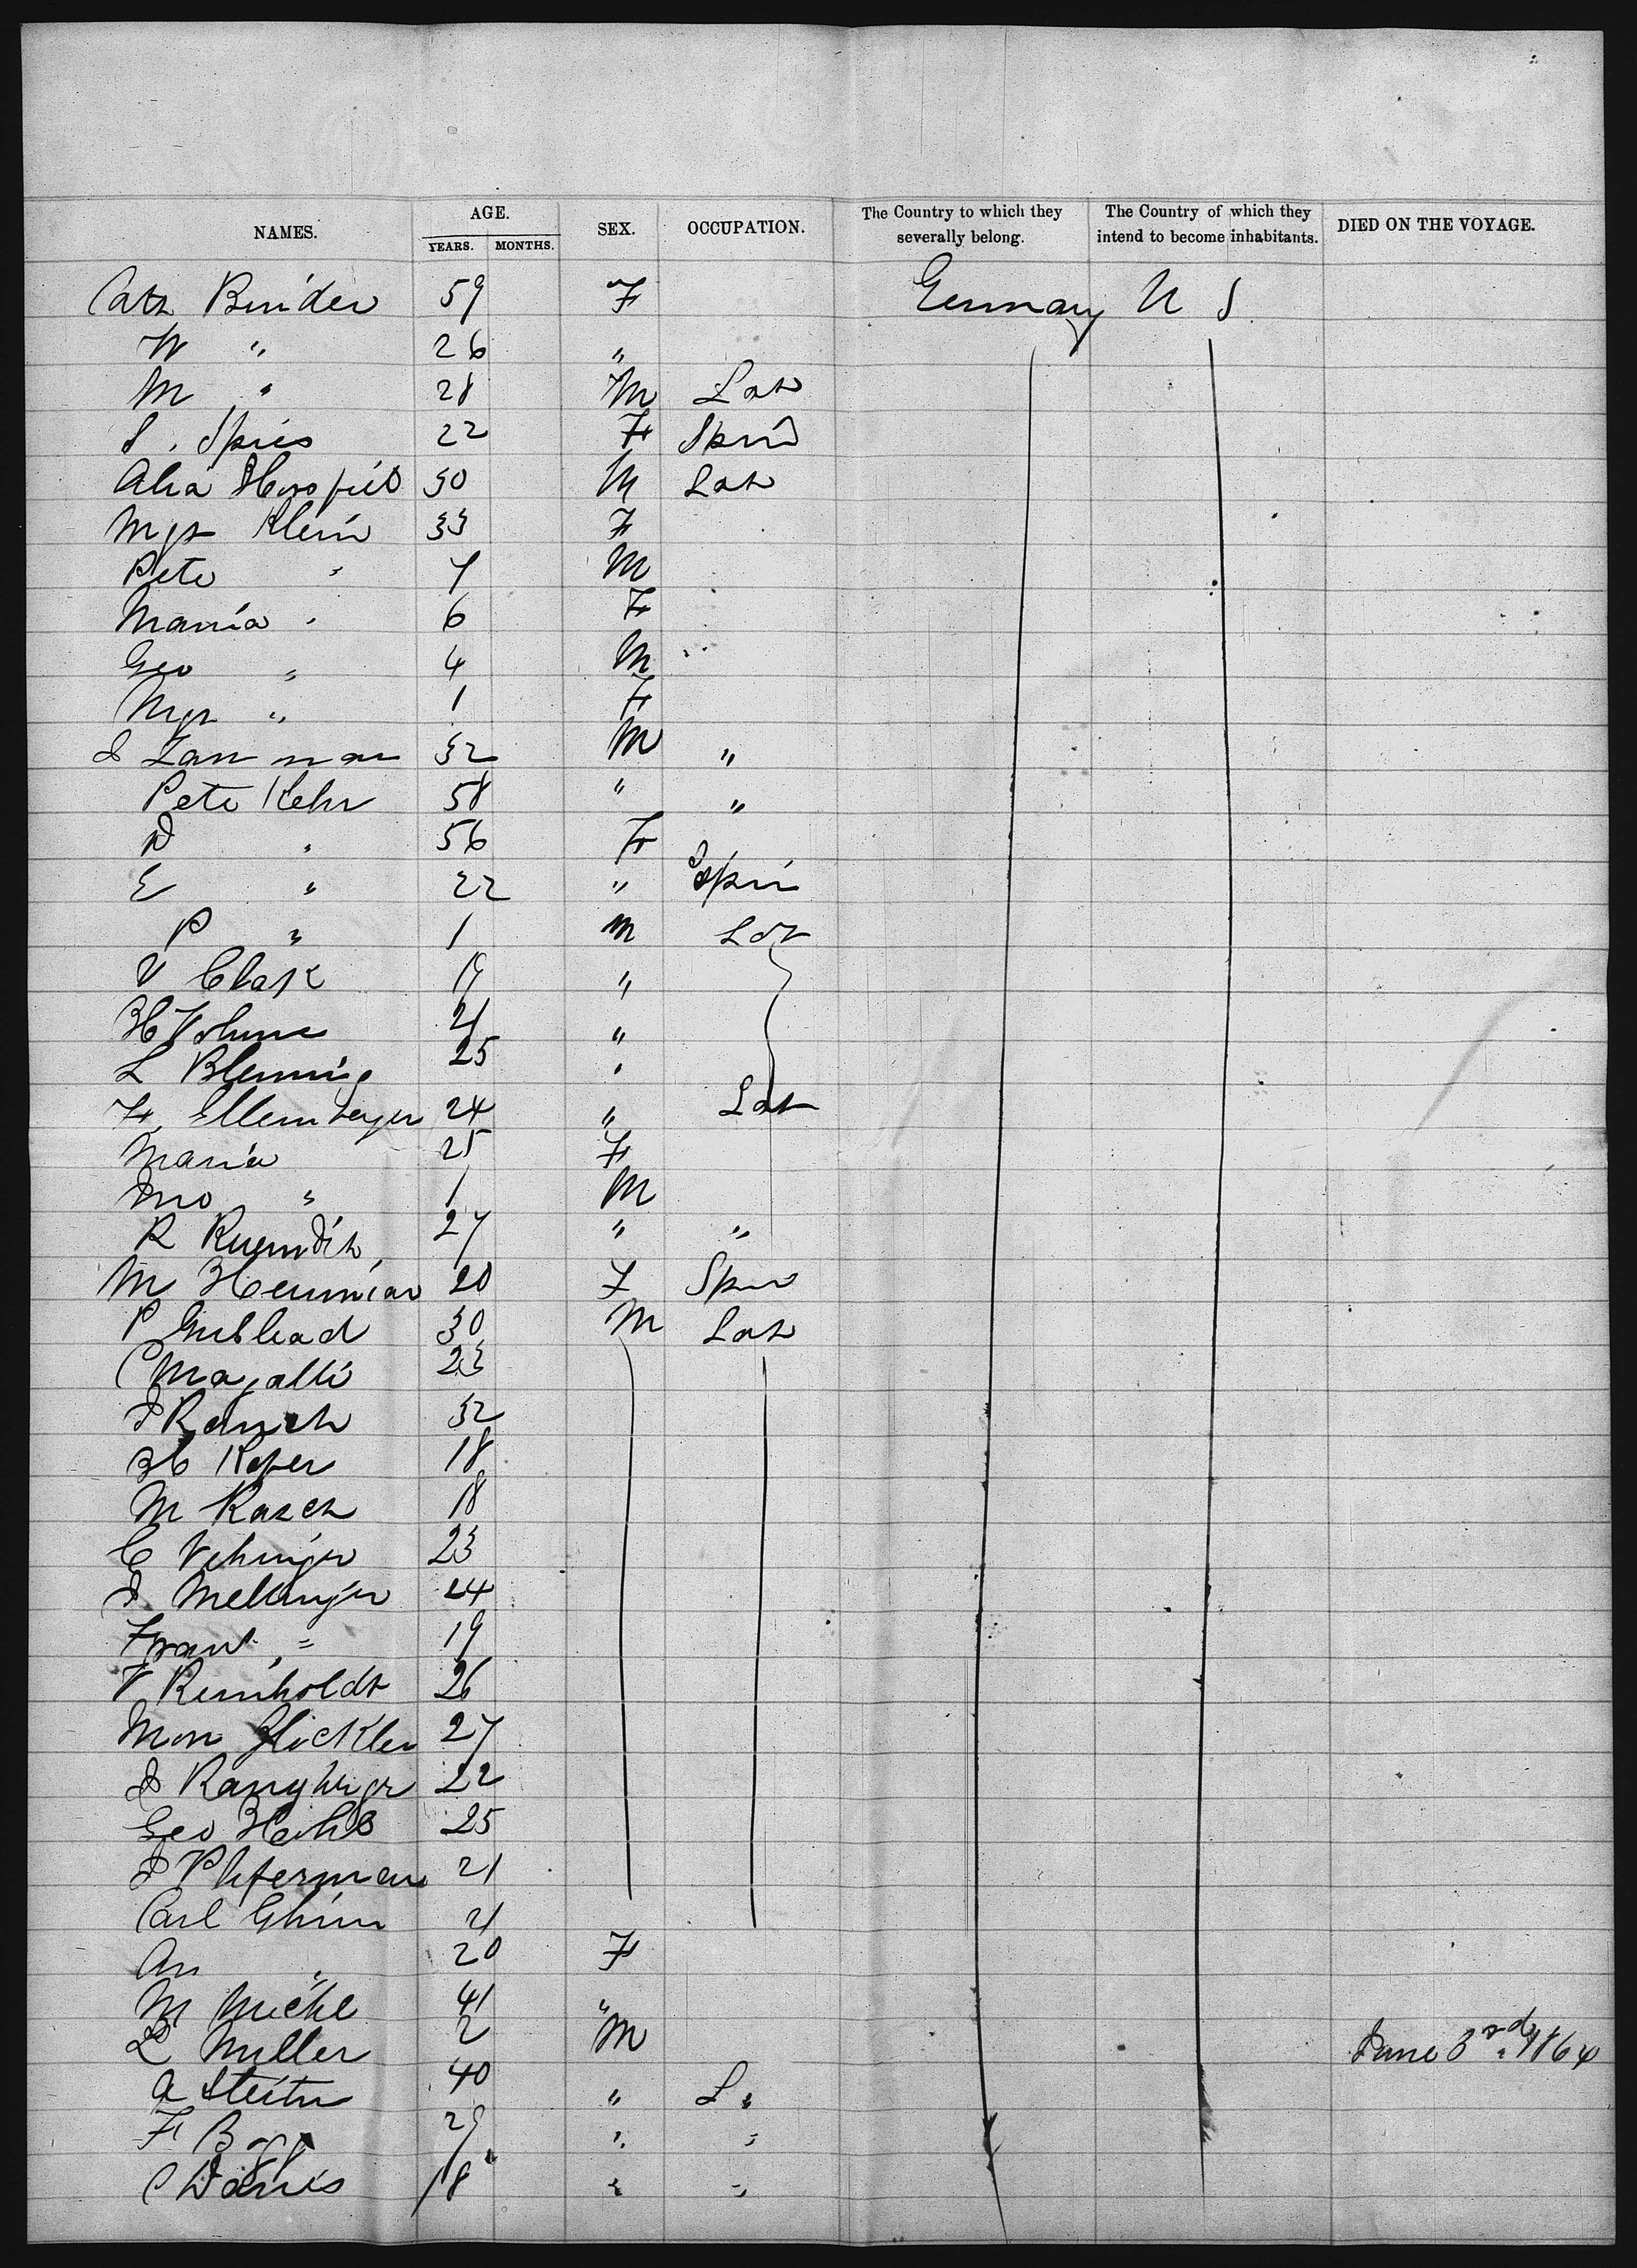 NAMES. AGE. YEARS. MONTHS. SEX. OCCUPATION. The Country to which they severally belong. The Country of which they intend to become inhabitants. DIED ON THE VOYAGE.
Cath Binder 59 F Germany U S
W " 26 "
M " 28 M Lab
S. Spies 22 F Spin
30 M Lab
Mgr Klein 33 F
Pete " 7 M
Maria " 6 F
Geo " 4 M
Mgr " 1 F
J Zan man 32 M "
Pete Kehr 58 " "
D " 56 F
E " 22 " Spin
P " 1 M Lab
V Clask 19 "
H Volume 21 "
L Blenning 25 "
F. Ellemberger 24 " Lab
Maria 25 F
Mo " 1 M
R 27 " "
M Herman 20 F Spin
P Gutlead 30 M Lab
C Magalli 23
J Rausch 32
H Kefer 18
M Rasch 18
C Vehinger 23
J. Mellinger 24
Franz " 19
V Reinholdt 26
Mon Glickler 27
J Rangherger 22
Geo 25
J Pheterman 21
Carl Ghim 21
An " 20 F
M Michl 41 "
L Miller 2 M June 3rd, 1864
A Steitu 40 " L "
F Bopp 29 " "
C Danis 18 " "